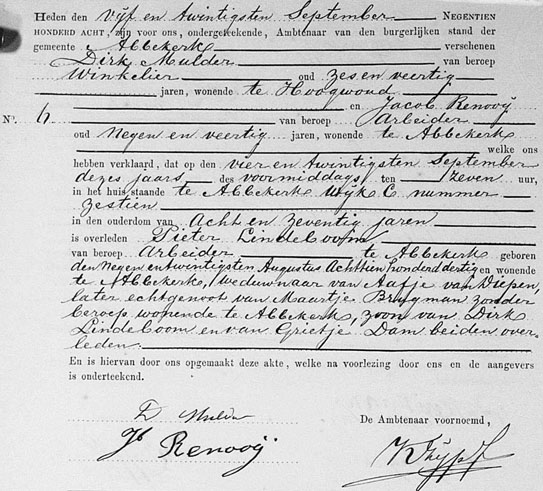 Heden den vijf en twintigsten September NEGENTIEN
HONDERD ACHT, zijn voor ons, ondergeteekende, Ambtenaar van den burgerlijken stand der
gemeente Abbekerk verschenen
Dirk Mulder van beroep
Winkelier oud zes en veertig
jaren, wonende te Hoogwoud
en Jacob Renooij
No. 6 van beroep Arbeider
oud negen en veertig jaren, wonende te Abbekerk
welke ons
hebben verklaard, dat op den vier en twintigsten September
dezes jaars des voormiddags ten zeven uur,
in het huis staande te Abbekerk Wijk C nummer
zestien
in den ouderdom van Acht en zeventig jaren
is overleden Pieter Lindeboom
van beroep Arbeider te Abbekerk geboren
den negen en twintigsten Augustus Achttien honderd dertig en wonende
te Abbekerk, weduwnaar van Aafje van Diepen,
later echtgenoot van Maartje Brugman zonder
beroep wonende te Abbekerk, zoon van Dirk
Lindeboom en van Grietje Dam beiden over-
leden.
En is hiervan door ons opgemaakt deze akte, welke na voorlezing door ons en de aangevers
is onderteekend.
D Mulder
Jb Renooij
De Ambtenaar voornoemd,